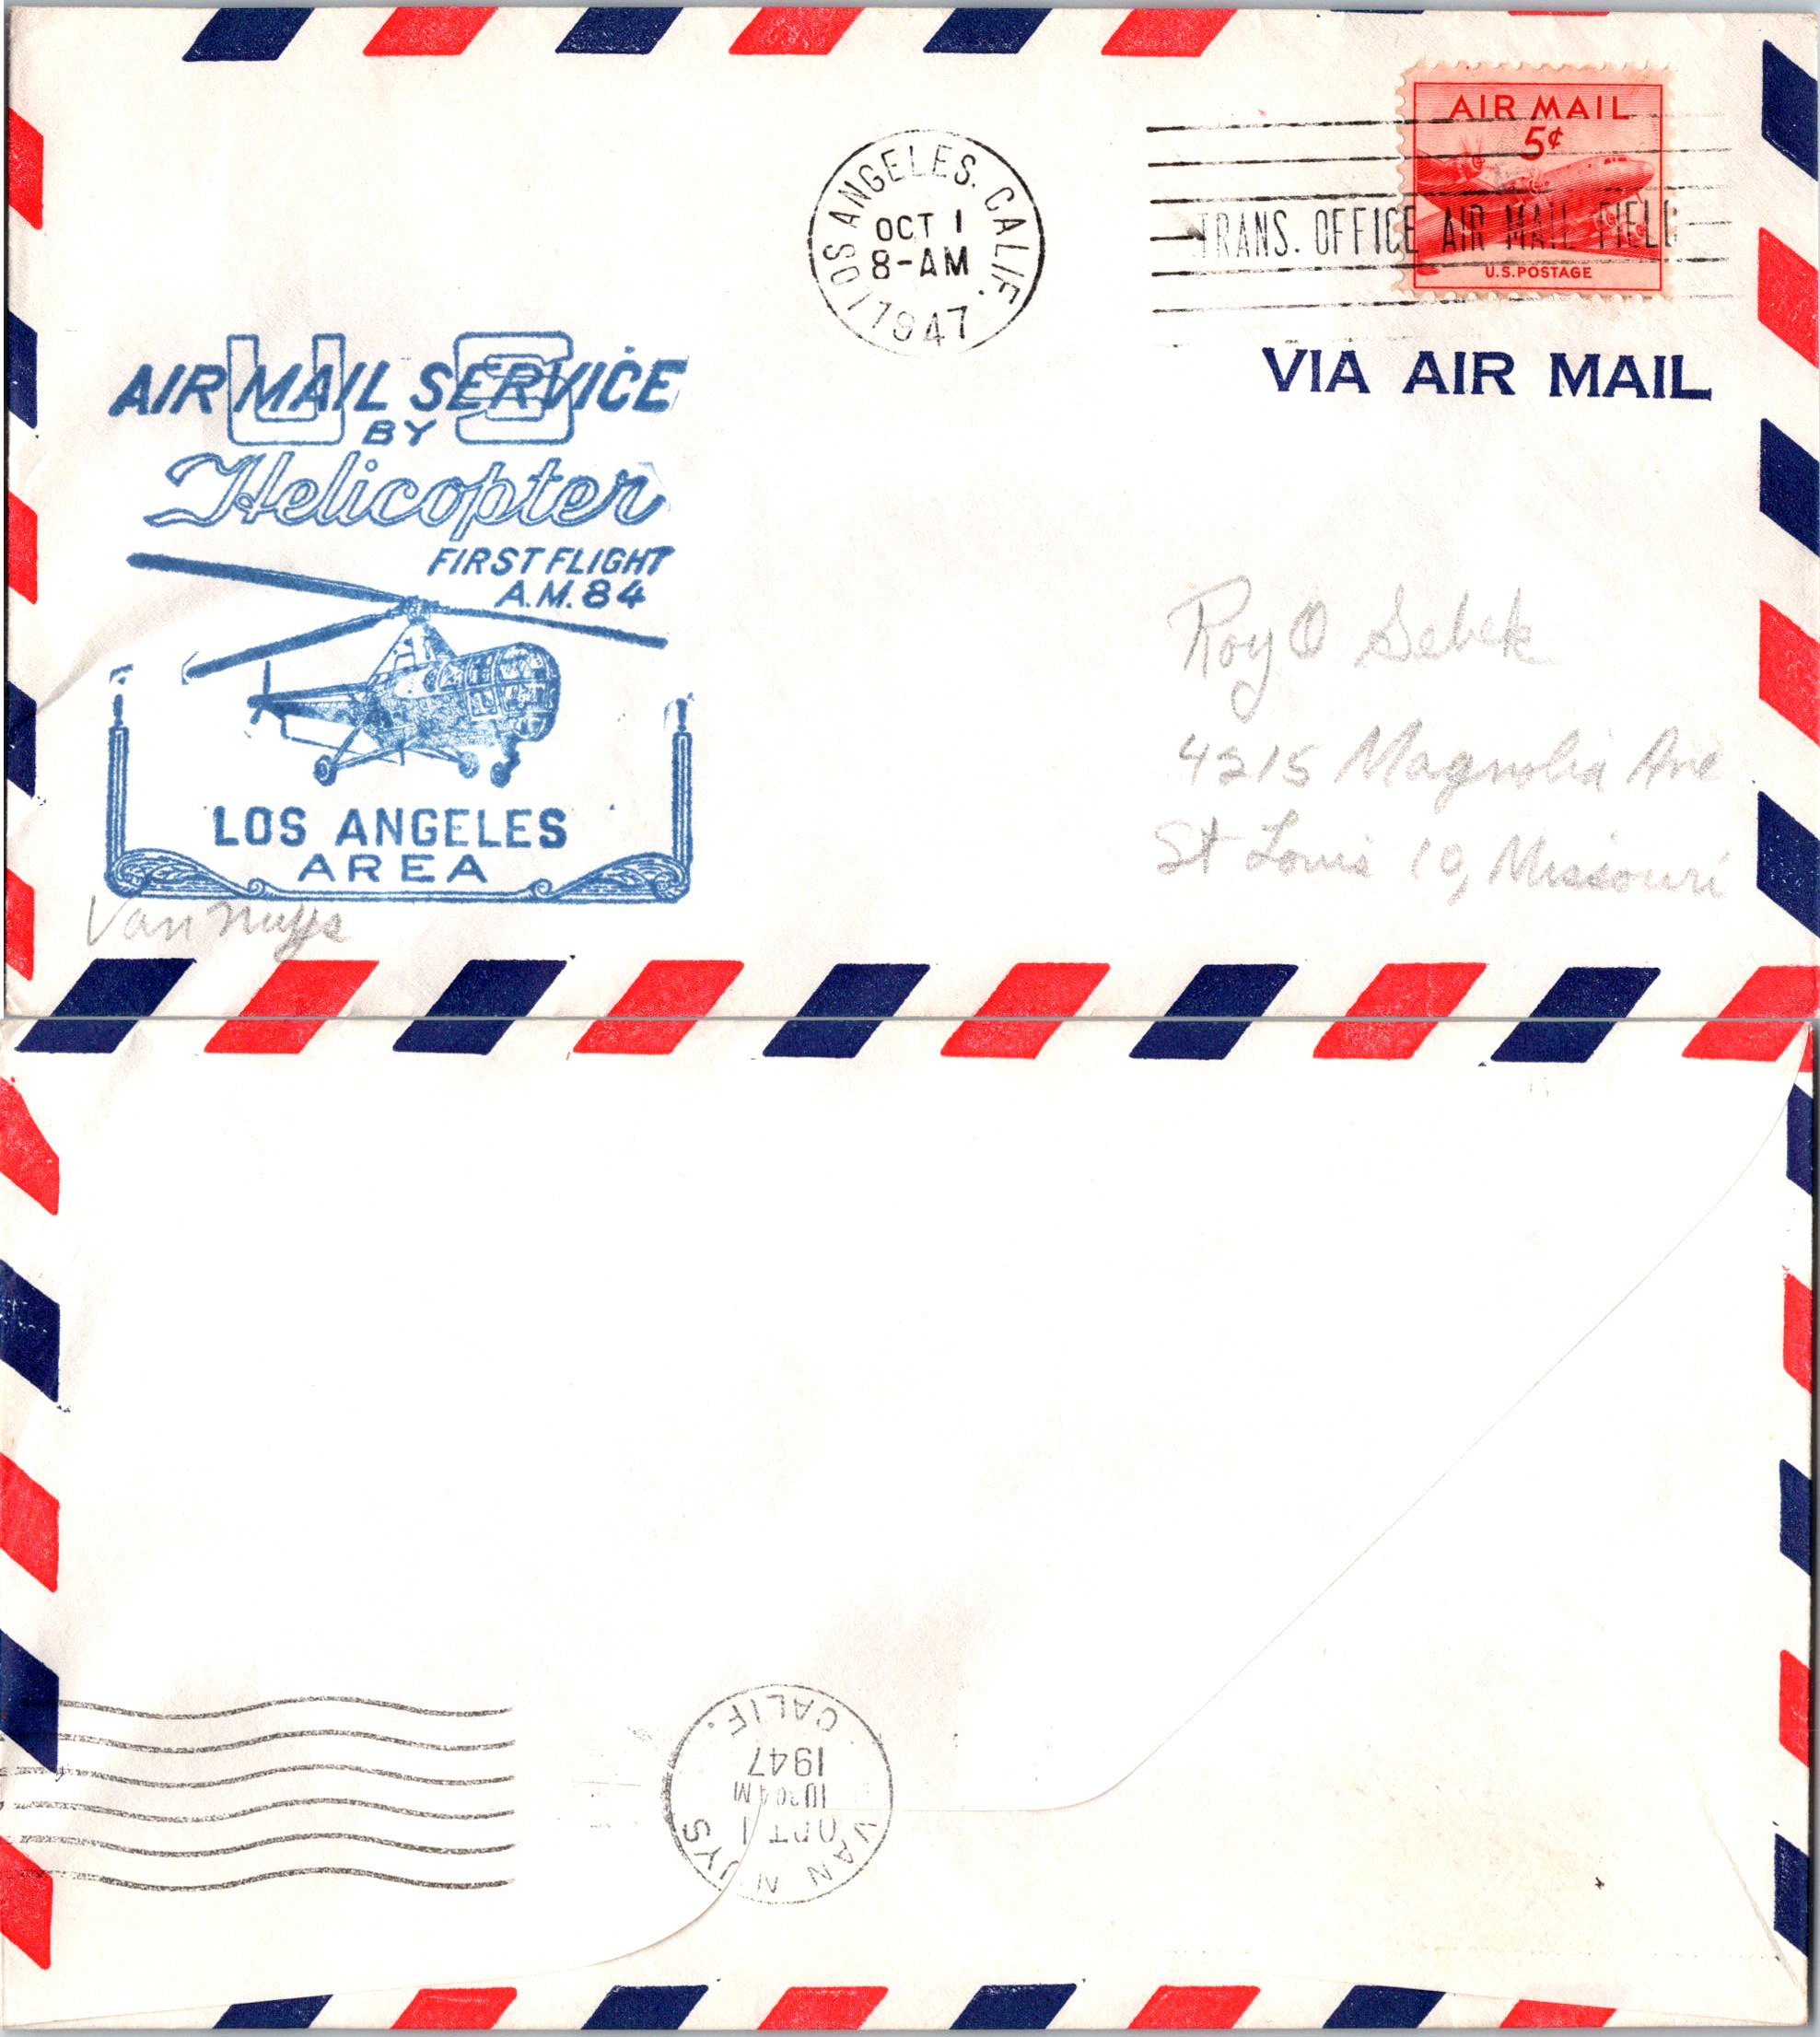 AIR MAIL
5¢
U.S. POSTAGE
LOS ANGELES, CALIF.
OCT 1
8-AM
1947
TRANS. OFFICE AIR MAIL FIELD
VIA AIR MAIL
US
AIR MAIL SERVICE
BY
Helicopter
FIRST FLIGHT
A.M. 84
LOS ANGELES
AREA
Van Nuys
Roy O Sebek
4215 Magnolia Ave
St Louis 10, Missouri
VAN NUYS
OCT 1
1947
CALIF.